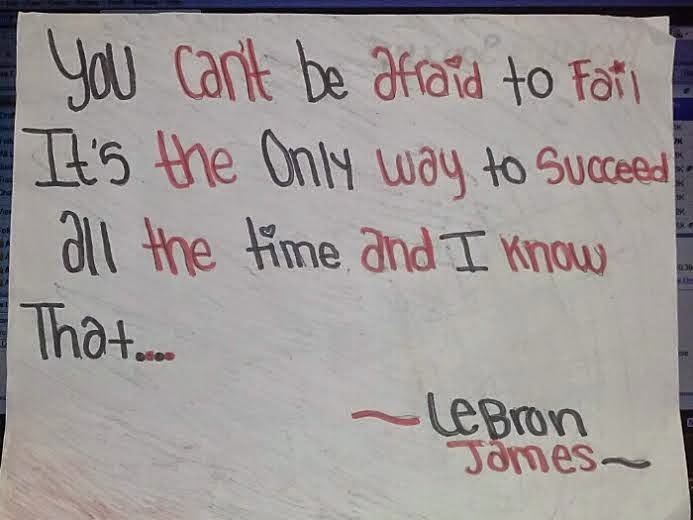 You can't be afraid to Fail
It's the Only way to Succeed
all the time and I know
That....
~ LeBron
James ~